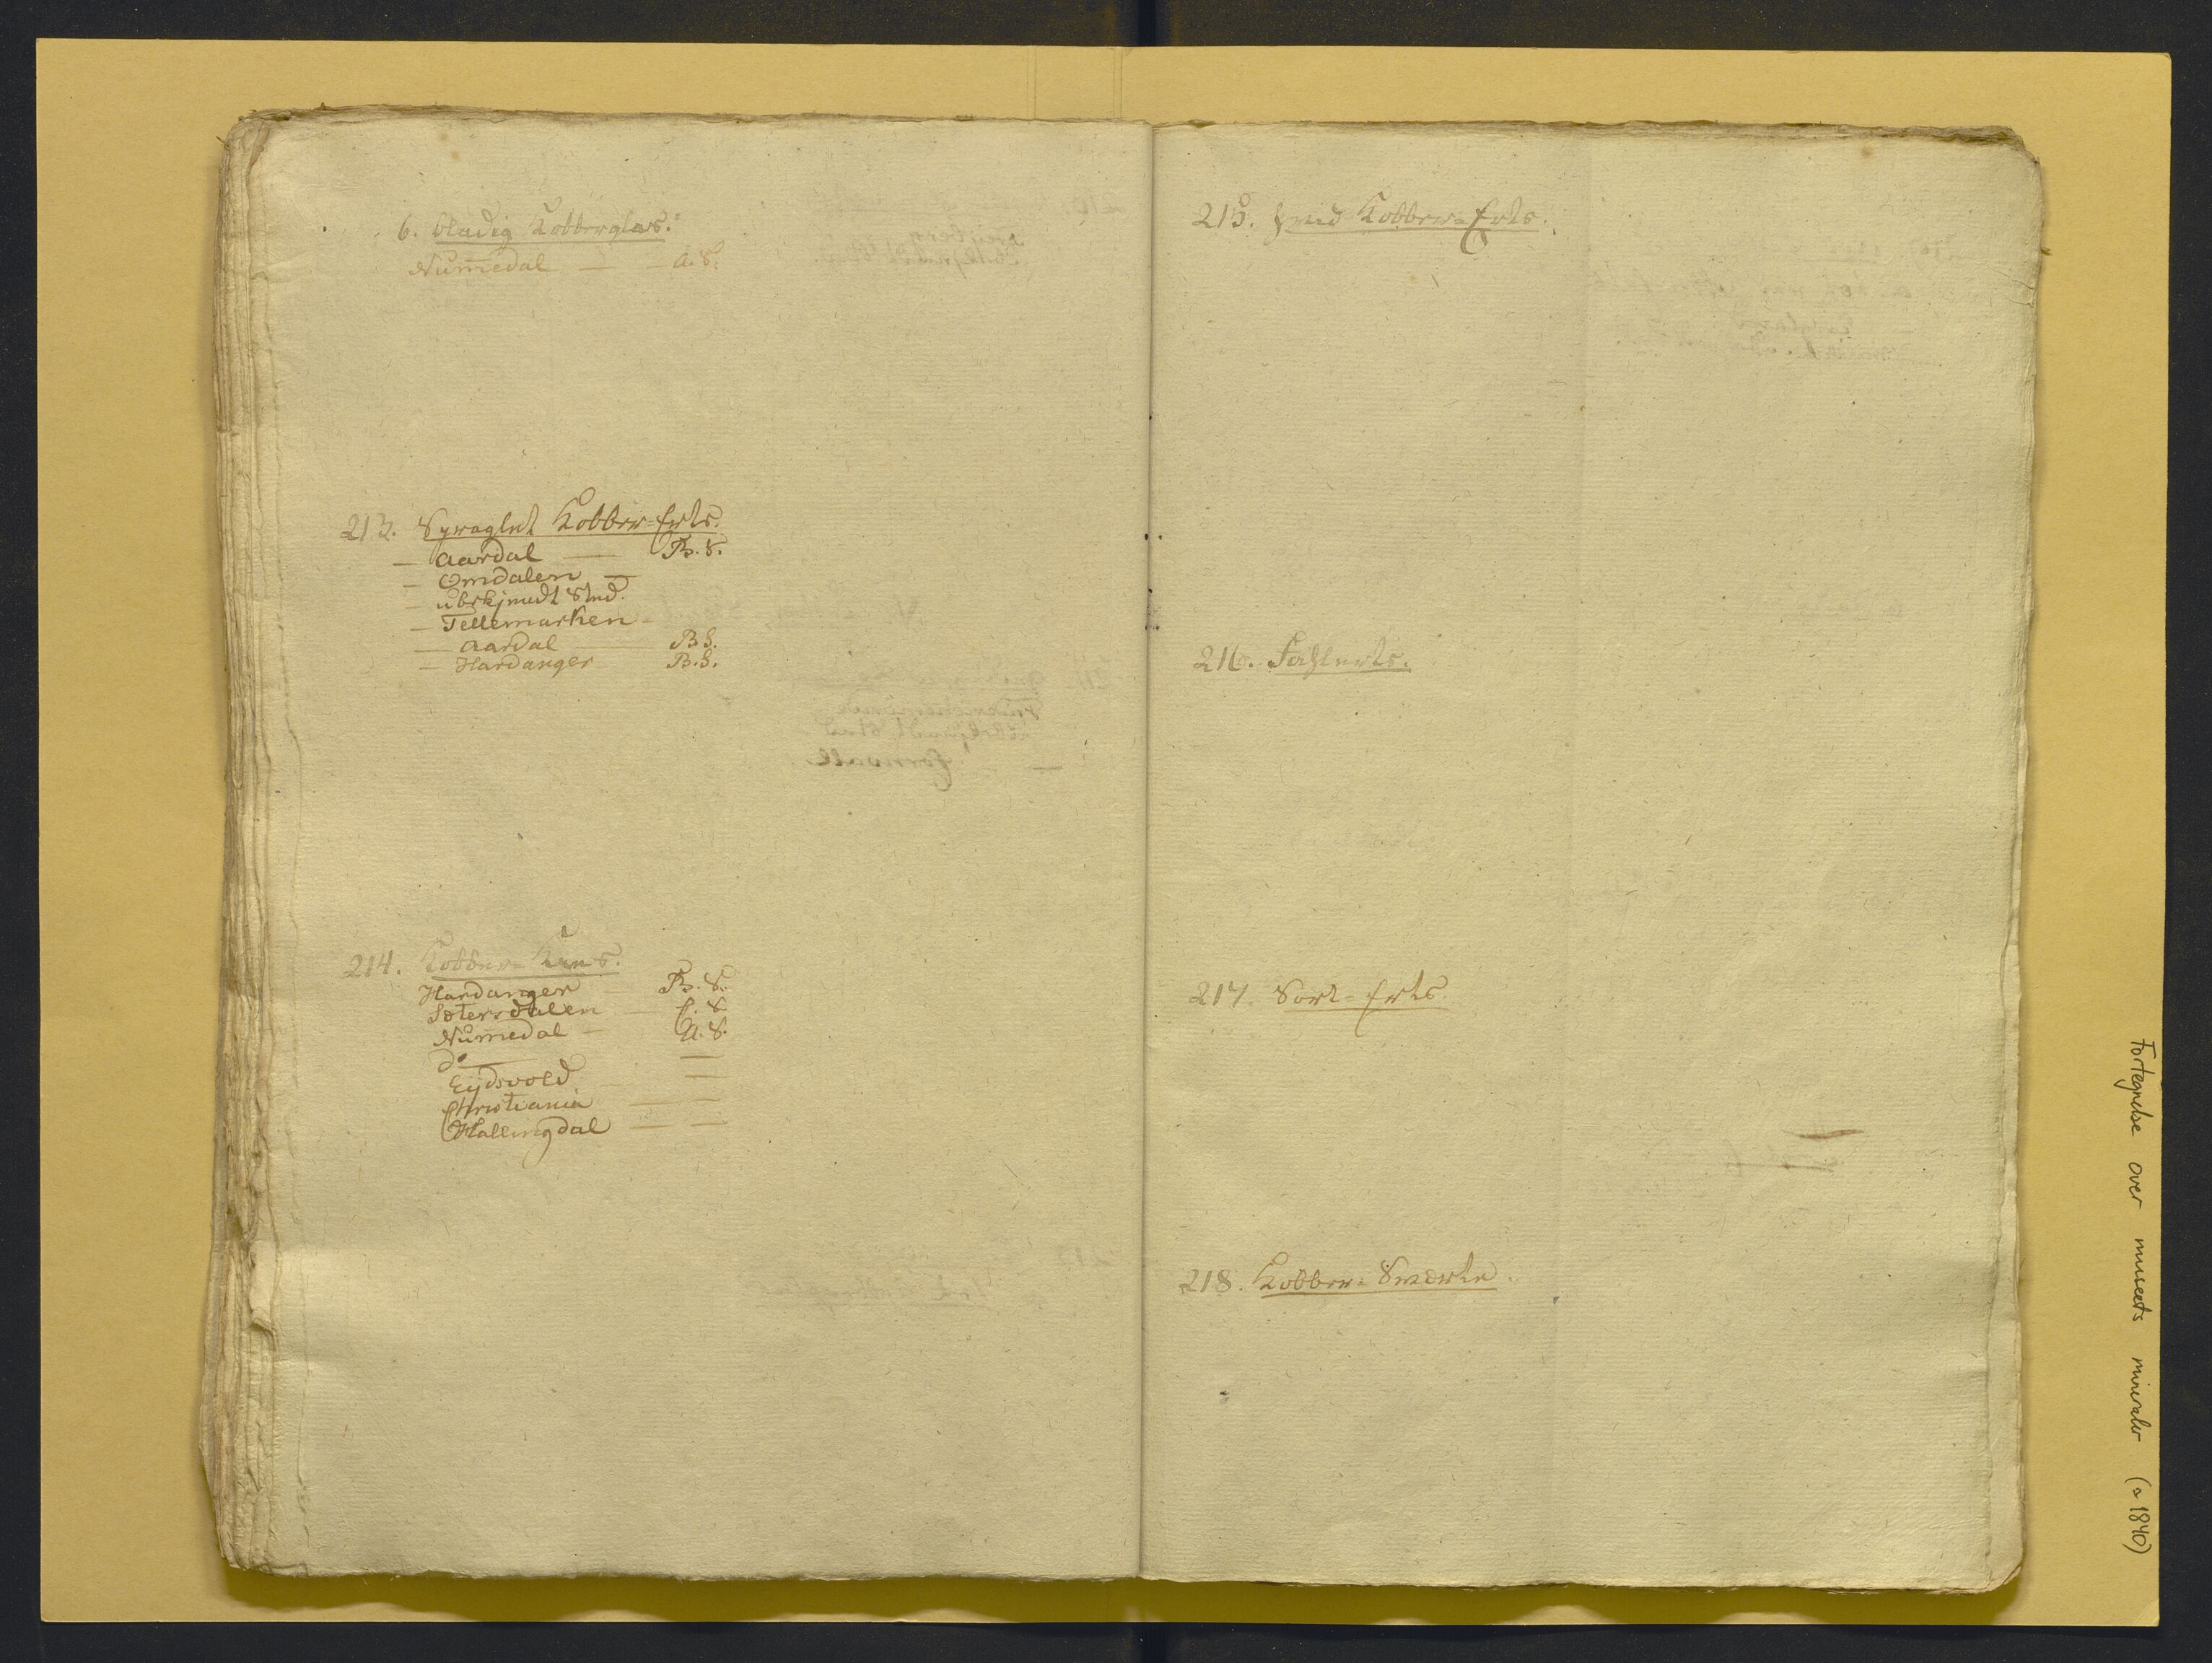 6. bladig Kobberglas.
Nummedal — — A. S.
213. Spraglet Kobber=Erts.
— Aardal — B. S.
— Omdalen —
— ubekjendt Sted.
— Tellemarken -
— Aardal — B. S.
— Hardanger B. S.
214. Kobber=Kies.
Hardanger — B. S.
Sætersdalen — C. S.
Nummedal — A. S.
do — —
Eydsvold — —
Christiania — —
Hallingdal — —
215. hvid Kobber=Erts.
216. Fahlerts.
217. Sort=Erts.
218. Kobber=Sværte.
Fortegnelse over museets mineraler (a 1840)